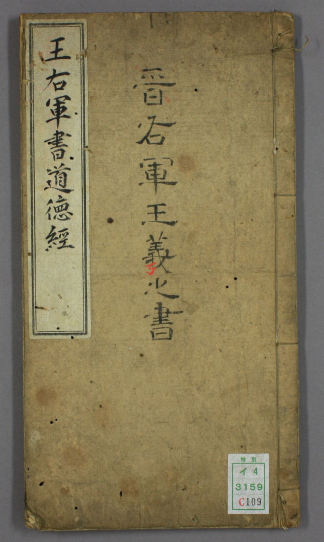 王右軍書道德經
晋右軍王義之書
特別
イ4
3159
C109